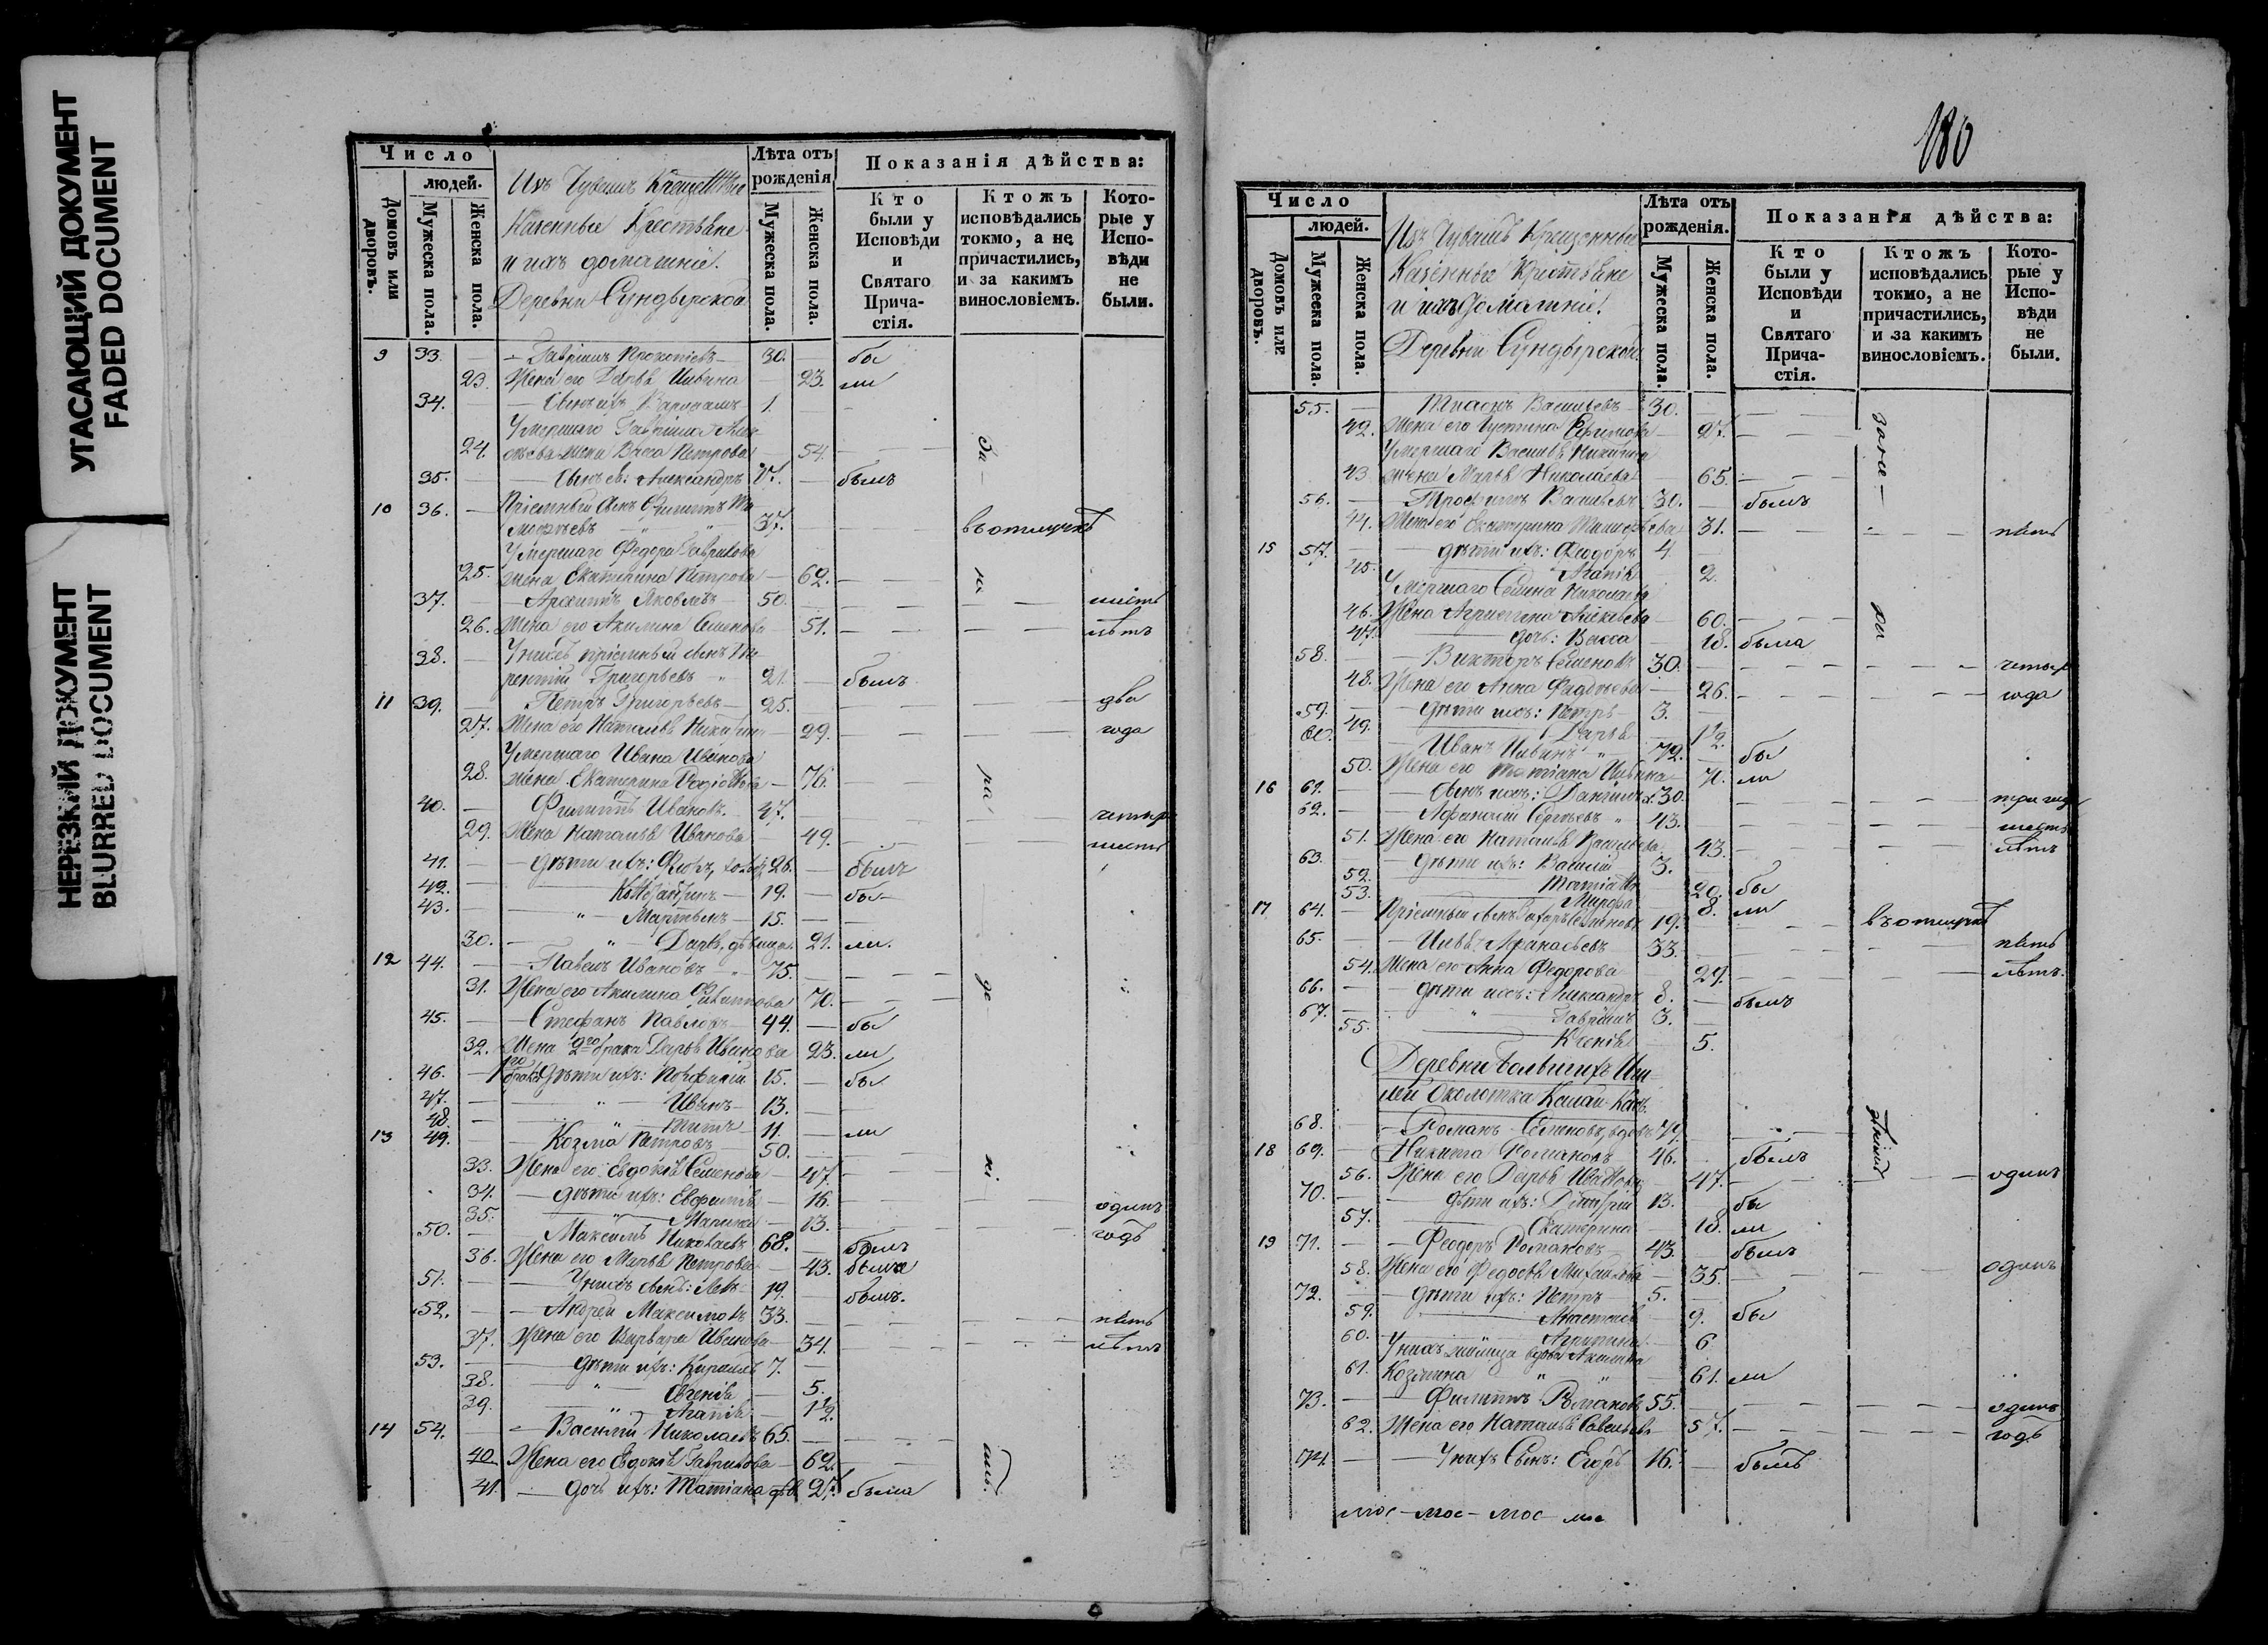 УГАСАЮЩИЙ ДОКУМЕНТ
FADED DOCUMENT
НЕРЕЗКИЙ ДОКУМЕНТ
BLURRED DOCUMENT
Число
людей.
Домовъ или дворовъ.
Мужеска пола.
Женска пола.
Изъ Чувашъ Крещенные
Казенные Крестьяне
и ихъ домашніе.
Деревни Сундырской
Лѣта отъ рожденія
Мужеска пола.
Женска пола.
Показанія дѣйства:
Кто были у Исповѣди и Святаго Причастія.
Ктожъ исповѣдались токмо, а не причастились, и за какимъ винословіемъ.
Которые у Исповѣди не были.
9 33. — Гавріилъ Прокопіевъ — 30. бы
23. Жена его Дарья Ильина — 23. ли
34. — Сынъ ихъ — 1.
Умершаго Гавріила
24. жена Васса Петрова 54. — За
35. — Сынъ ея: Александръ 27. — былъ
10 36. — Пріемный сынъ Филиппъ
37. — въ отлучкѣ
Умершаго Федора Гаврилова
25. жена Екатерина Петрова — 62. — не
37. — Архиппъ Яковлевъ — 50. — шесть
26. Жена его Акилина Семенова — 51. — лѣтъ
38. — У нихъ пріемный сынъ
рентій Григорьевъ 21. — былъ
11 39. Петръ Григорьевъ — 25. — два
27. Жена его Наталья — 29. — года
Умершаго Ивана Иванова
28. жена Екатерина Родіонова — 76. — ра
40. — Филиппъ Ивановъ. — 47. — четыре
29. Жена Наталья Иванова 49. — шесть
41. — дѣти ихъ: 26. — былъ
42. — 19. — бы-
43. — " — Мартынъ — 15. —
30. — " — Дарья, дѣвица. 21. ли.
12 44. — Павелъ Ивановъ — 75. —
31. Жена его Акилина Филиппова 70. — дѣ
45. — Стефанъ Павловъ — 44. — бы
32. Жена 2го брака Дарья Иванова 23. ли
46. — 1го брака Дѣти ихъ: Порфирій 15. — бы
47. — " — Иванъ — 13. —
48. — " — Титъ — 11. — ли
13 49. — Козма Петровъ 50. —
33. Жена его Евдокія Семенова — 47. — ні
34. — дѣти ихъ: Евфимія — 16. —
35. — " — Марина — 13. — одинъ
50. — Максимъ Николаевъ 68. — былъ годъ
36. Жена его Марья Петрова — 43. была
51. — У нихъ сынъ: Левъ — 19. — былъ.
52. — Андрей Максимовъ 33. — пять
37. Жена его Варвара Иванова — 34. — лѣтъ
53. — дѣти ихъ: Кириллъ 7. —
38. — " — Евгенія — 5.
39. — " — Агапія — 1½.
14 54. — Василій Николаевъ 65. —
40. Жена его Евдокія Гаврилова — 62. —
41. — дочь ихъ: Татіана дѣв. 25. была
180
Число
людей.
Домовъ или дворовъ.
Мужеска пола.
Женска пола.
Изъ Чувашъ Крещенные
Казенные Крестьяне
и ихъ домашніе.
Деревни Сундырской.
Лѣта отъ рожденія.
Мужеска пола.
Женска пола.
Показанія дѣйства:
Кто были у Исповѣди и Святаго Причастія.
Ктожъ исповѣдались токмо, а не причастились, и за какимъ винословіемъ.
Которые у Исповѣди не были.
55. — Васильевъ — 30. —
42. Жена его Устина Ефимова — 27. — за не —
Умершаго Василья Никитина
43. жена Марья Николаева 65. —
56. — Трофимъ Васильевъ 30. — былъ
44. Жена его Екатерина Тимофѣева 31. — пять
15 57. — дѣти ихъ: Феодоръ 4. —
45. Агапія 2.
Умершаго Семена Николаева
46. Жена Агрипина Алексѣева 60. — ра
47. — дочь: Васса 18. была
58. — Викторъ Семеновъ 30. — четыре
48. Жена его Анна Фадѣева — 26. — года
59. — дѣти ихъ: Петръ 3. —
49. Дарья — 1½.
60. Иванъ Ильинъ " — 72. — бы
50. Жена его Татіана Ильина 71. ли
16 61. — Сынъ ихъ: Даніилъ х. 30. — три года
62. — Афанасій Сергѣевъ " 43. — шесть
51. Жена его Наталья Васильева 43. — лѣтъ
63. — дѣти ихъ: Василій 3.
52. Татіана 20. бы
53. Марфа 8. ли
17 64. — Пріемный сынъ Захаръ Семеновъ 19. — въ отлучкѣ
65. — Илья Афанасьевъ 33. — пять
54. Жена его Анна Федорова 29. — лѣтъ.
66. — дѣти ихъ: Александръ 8. — былъ
67. — " — Гавріилъ 3. —
55. Ксенія 5.
Деревни Большихъ
Околотка
68. — Романъ Семеновъ, вдовъ 79. —
18 69. — Никита Романовъ 46. былъ дѣніемъ
56. Жена его Дарья Иванова 47. — одинъ
70. — дѣти ихъ: Димитрій 13. — бы
57. Екатерина 18. ли
19 71. — Феодоръ Романовъ 43. былъ
58. Жена его Федосья Михайлова 35. — одинъ
72. — дѣти ихъ: Петръ 5. —
59. Анастасія 9. бы
60. Агрипина 6.
У нихъ вдова Акилина
61. Козмина " " 61. ли
73. — Филиппъ Романовъ 55. — одинъ
62. Жена его Наталья Савельева 57. — годъ
74. — У нихъ Сынъ: Егоръ 16. — былъ